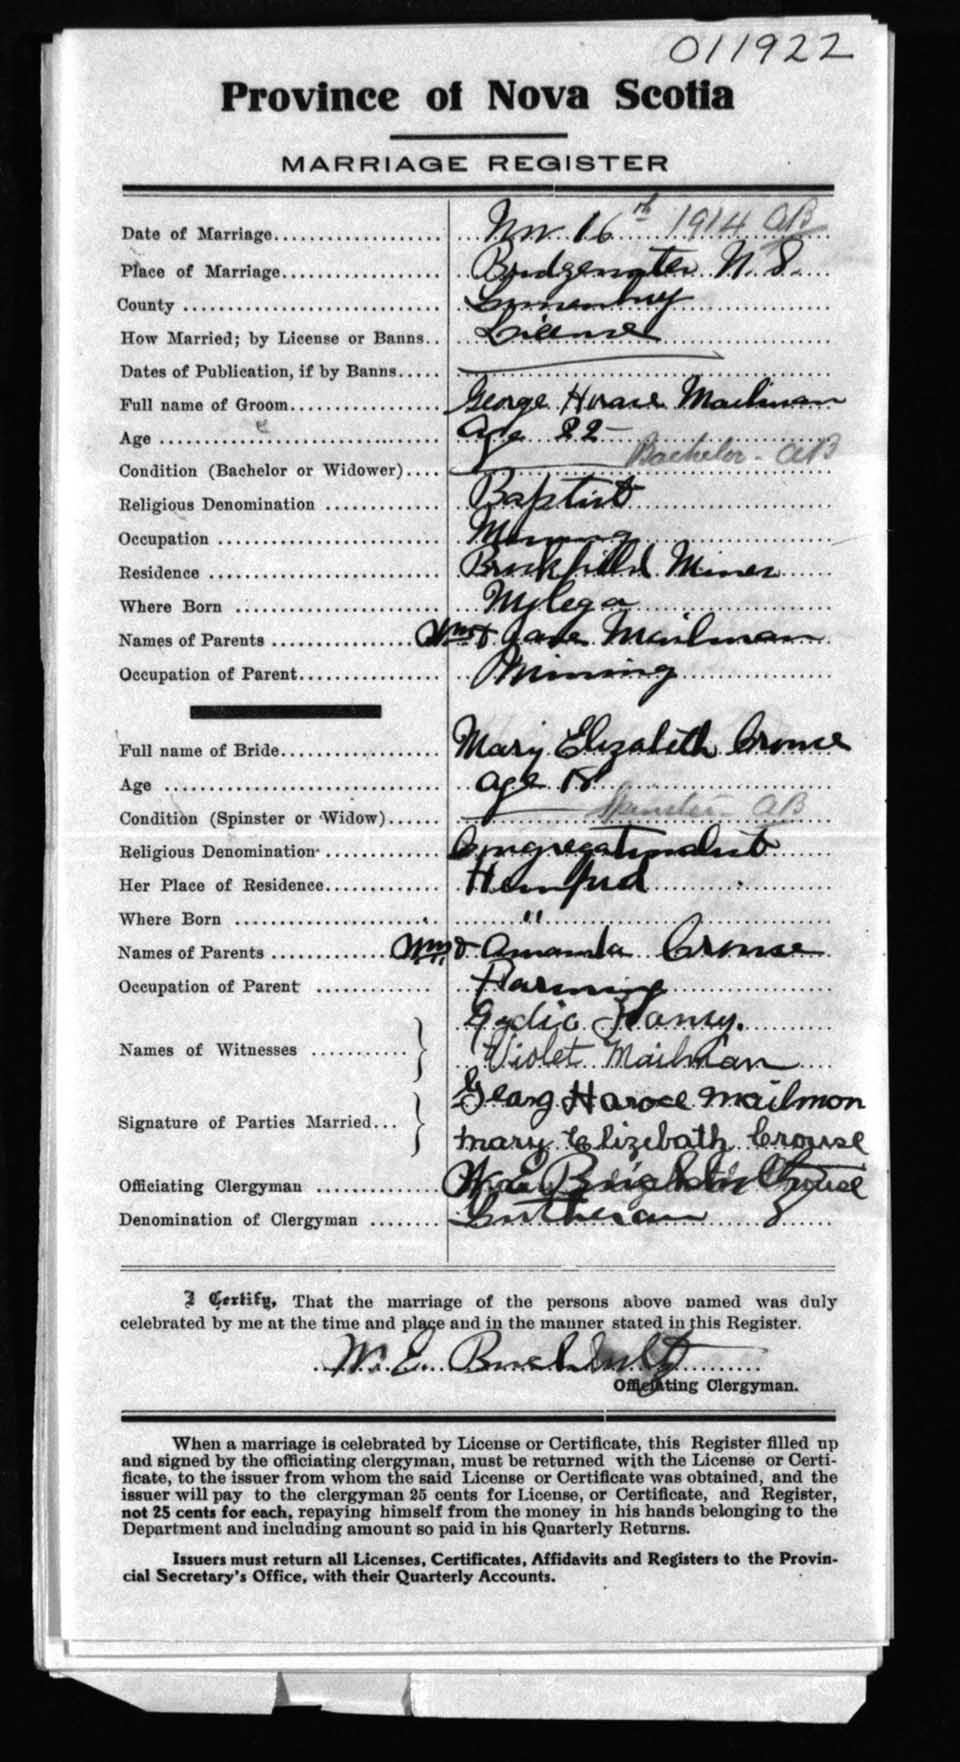 011922
Province of Nova Scotia
MARRIAGE REGISTER
Date of Marriage.................... Nov 16th 1914 AB
Place of Marriage................... Bridgewater N.S.
County ............................... Lunenburg
How Married; by License or Banns.. License
Dates of Publication, if by Banns.....
Full name of Groom.................. George Horace Mailman
Age .................................. Age 22
Condition (Bachelor or Widower).... Bachelor - AB
Religious Denomination ............. Baptist
Occupation ........................... Mining
Residence ............................ Brookfield Mines
Where Born ......................... Molega
Names of Parents .................... Wm & Jane Mailman
Occupation of Parent................. Mining
Full name of Bride................... Mary Elizabeth Crouse
Age .................................. age 18
Condition (Spinster or Widow)...... Spinster - AB
Religious Denomination ............. Congregationalist
Her Place of Residence.............. Hemford
Where Born ......................... "
Names of Parents .................... Wm & Amanda Crouse
Occupation of Parent ................ Farming
Names of Witnesses ............
Violet Mailman
Signature of Parties Married... Georg Harace Mailmon
Mary Elizebath Crouse
Officiating Clergyman ............... Crouse
Denomination of Clergyman ........ Lutheran
I Certify, That the marriage of the persons above named was duly
celebrated by me at the time and place and in the manner stated in this Register.
W. E.
Officiating Clergyman.
When a marriage is celebrated by License or Certificate, this Register filled up
and signed by the officiating clergyman, must be returned with the License or Certi-
ficate, to the issuer from whom the said License or Certificate was obtained, and the
issuer will pay to the clergyman 25 cents for License, or Certificate, and Register,
not 25 cents for each, repaying himself from the money in his hands belonging to the
Department and including amount so paid in his Quarterly Returns.
Issuers must return all Licenses, Certificates, Affidavits and Registers to the Provin-
cial Secretary's Office, with their Quarterly Accounts.